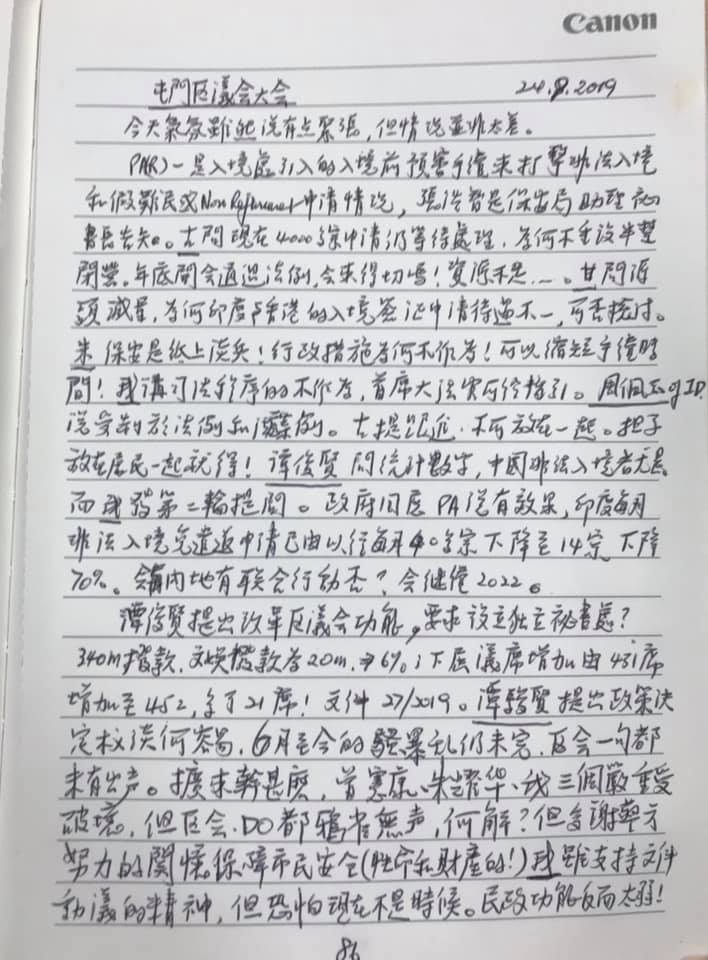 Canon
屯門区議会大会 24.9.2019
今天氣氛雖然説有点緊張,但情況並非太差。
PAR)一是入境處引入的入境前預審手續来打擊非法入境
和假難民或Non Refinement申請情況,張浩智是保安局助理祕
書長告知。古問現在4000多宗申請仍等待處理,為何不重設半
開營。年底開会通過法例,会来得切嗎!資源不足……。甘問源
頭減量,為何印度与香港的入境簽证申請待遇不一,可否検讨。
朱 保安是紙上談兵!行政措施為何不作為!可以縮短手續時
間!我講司法程序的不作為,首席大法官可作指引。
説受制於法例和案例。古提 不可放在一起。担子
放在居民一起就得!譚俊賢問統计數字,中國非法入境者
而我發第二輪提問。政府回應PA説有效果,印度每月
非法入境免遣返申請已由以往每月40多宗下降至14宗 下降
70%。与内地有联合行動否?会继續2022。
譚俊賢提出改革区議会功能,要求设立独立祕書處?
340m撥款,文娱撥款為20m→6%;下屆議席增加由431席
增加至452,多了21席!文件27/2019。譚駿賢提出政策决
定权谈何容易,6月至今的騷暴乱仍未完,区会一句都
未有出声。擴来幹甚麽,曾憲康、朱耀华、我三個嚴重受
破壞,但区会、DO都鴉雀無声,何解?但多謝警方
努力的關懷保障市民安全(性命和財產的!)我雖支持文件
動議的精神,但恐怕现在不是時候。民政功能反而太弱!
86